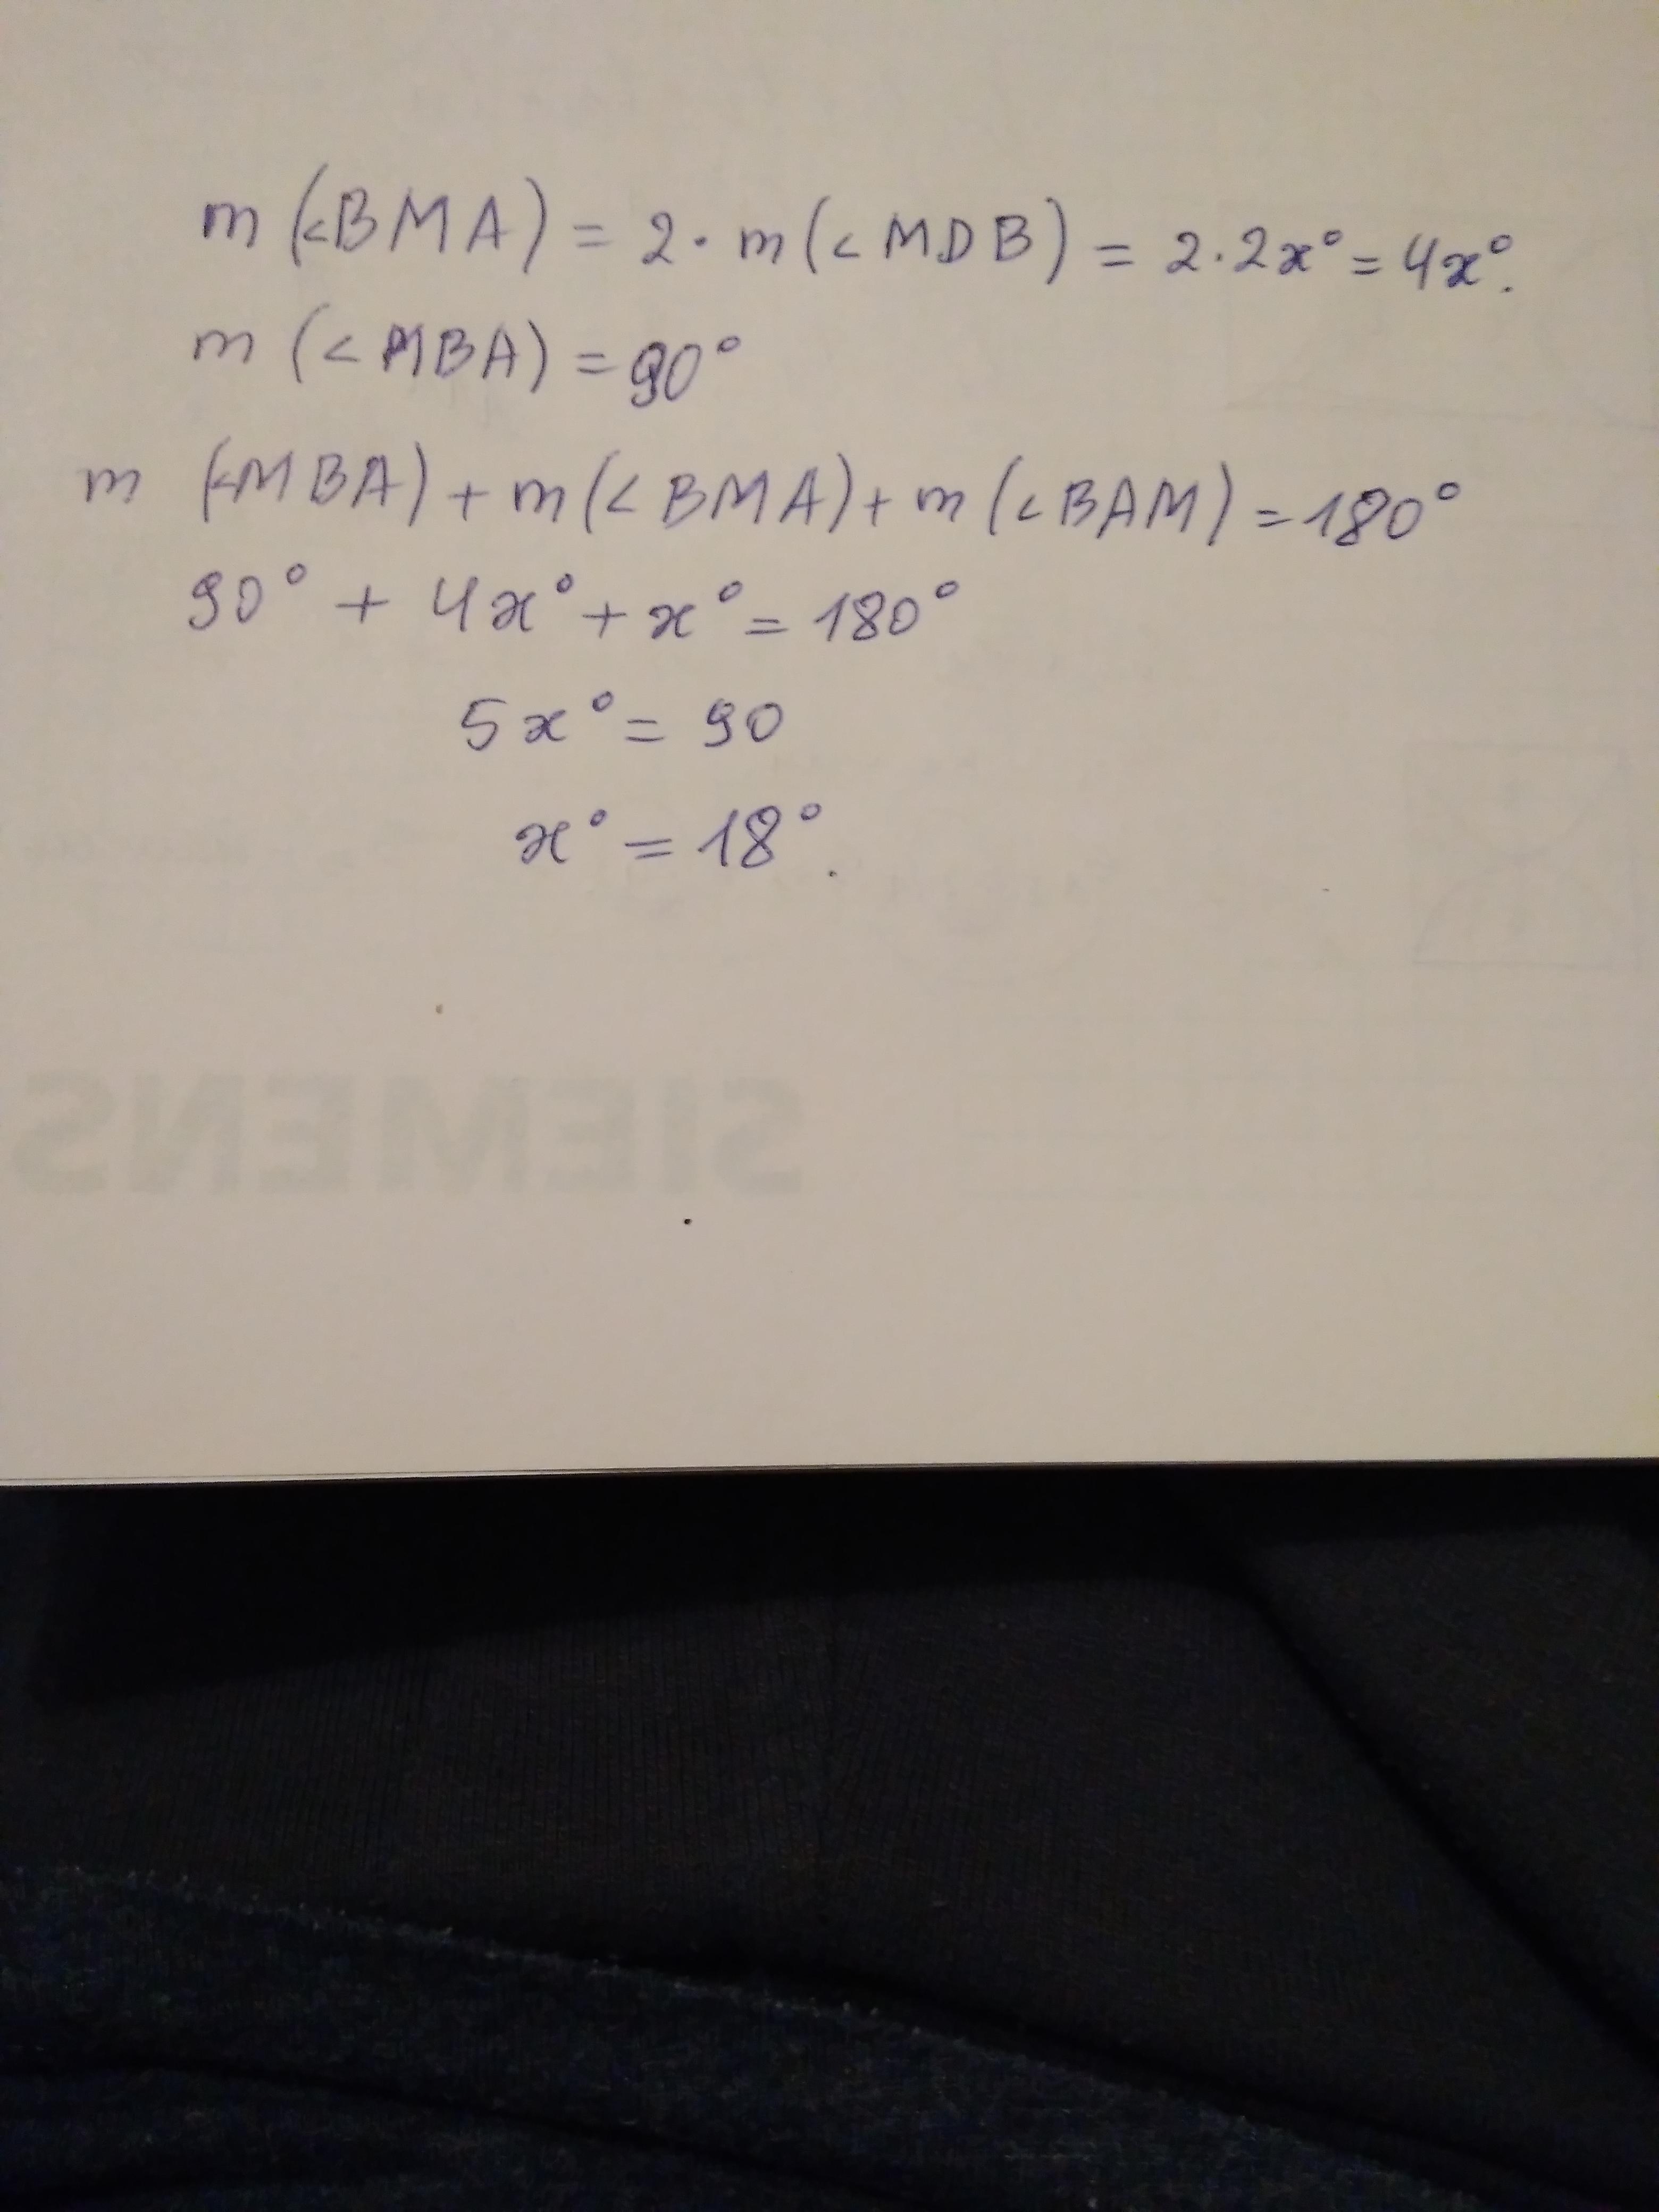 m (<BMA) = 2 · m (< MDB) = 2 · 2x° = 4x°.
m (< MBA) = 90°
m (<MBA) + m (< BMA) + m (< BAM) = 180°
90° + 4x° + x° = 180°
5x° = 90
x° = 18°.
SIEMENS